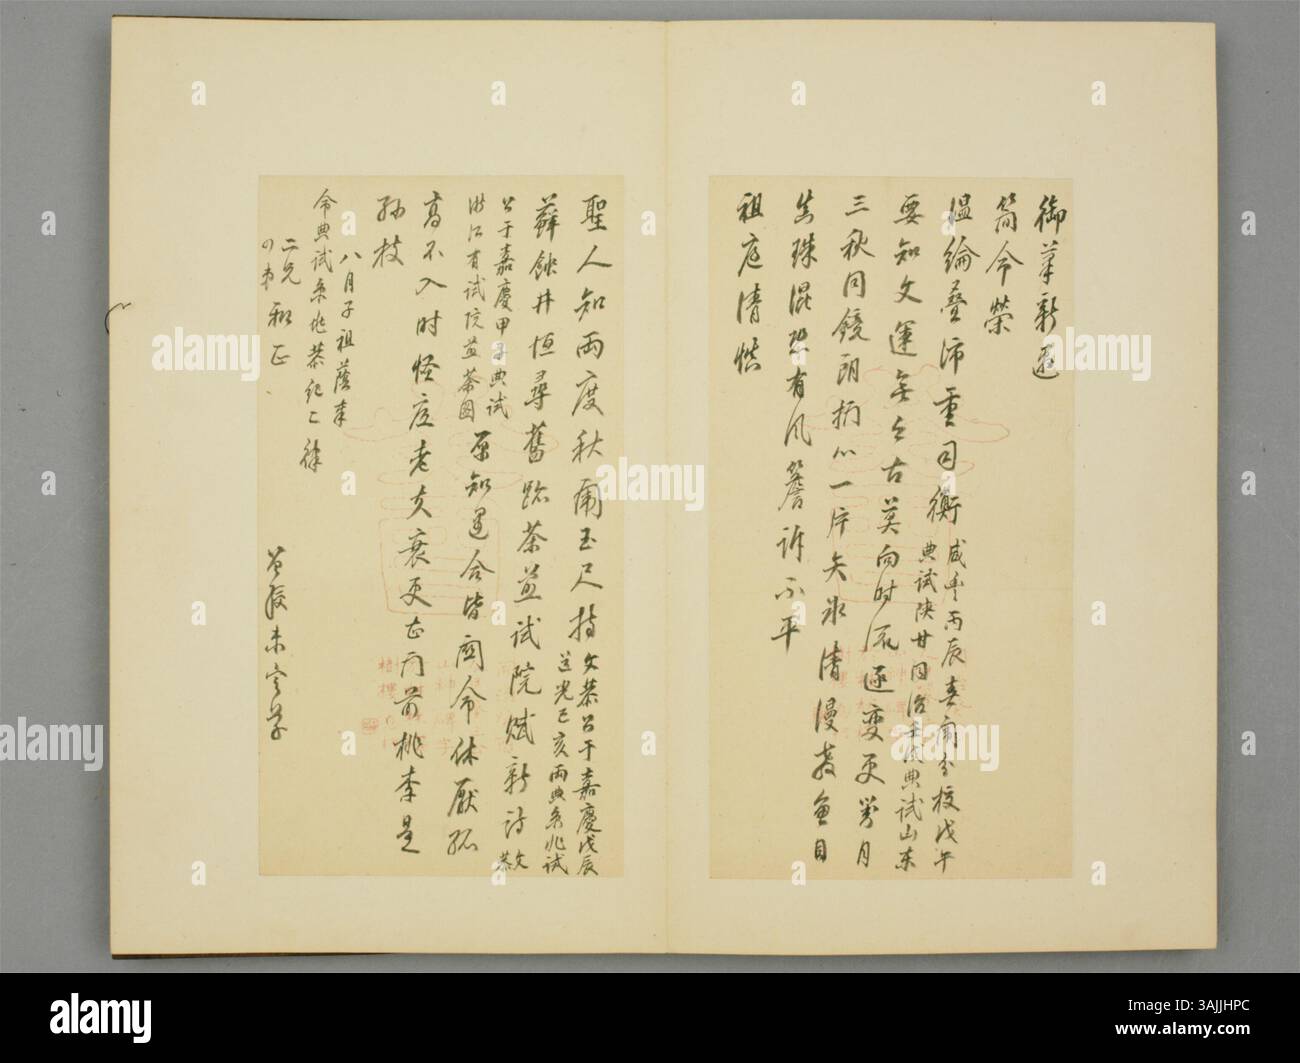 御筆新邀
簡命榮
溫綸疊沛重司衡 咸豐丙辰春闈分校戊午
典試陝甘同治壬戌典試山東
要知文運無今古莫向時流逐變更對月
三秋同鏡朗抒心一片矢冰清漫教魚目
真珠混恐有風簷訴不平
祖庭清慎
聖人知兩度秋闈玉尺持 文恭公于嘉慶戊辰
道光己亥兩典京兆試
蘚蝕井恒尋舊跡茶煎試院賦新詩 文恭
公于嘉慶甲子典試
浙江有試院煎茶圖
原知遇合皆關命休厭孤
高不入时怪底老夫衰更甚門前桃李是
孫枝
八月子祖蔭奉
命典試京兆恭紀二律
二兄
四弟 和正
未定草
alamy
Image ID: 3AJJHPC
www.alamy.com